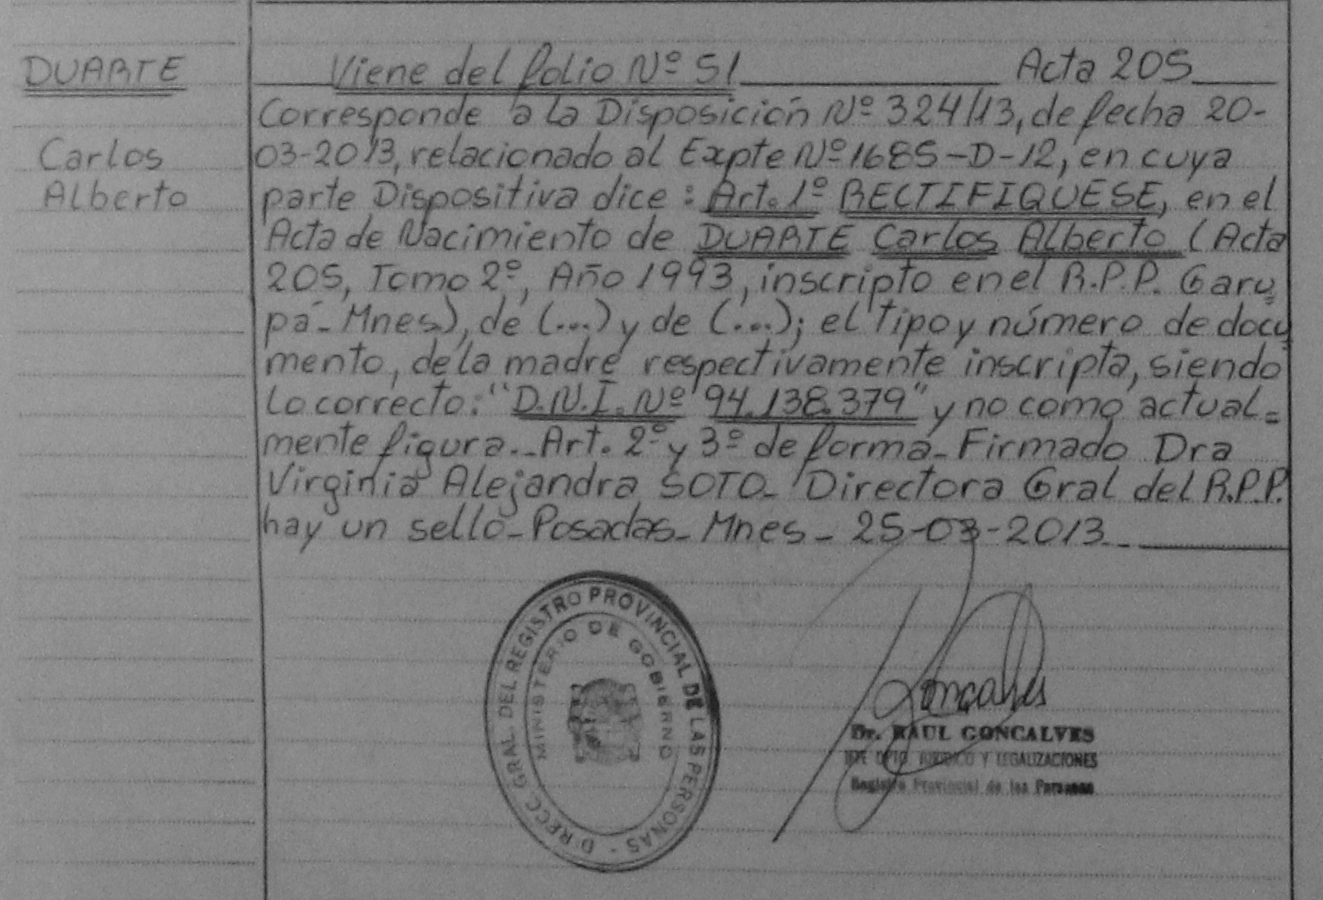 DUARTE
Carlos
Alberto
Viene del folio Nº 51 Acta 205
Corresponde a la Disposición Nº 324/13, de fecha 20-
03-2013, relacionado al Expte Nº 1685-D-12, en cuya
parte Dispositiva dice: Art. 1º RECTIFIQUESE, en el
Acta de Nacimiento de DUARTE Carlos Alberto (Acta
205, Tomo 2º, Año 1993, inscripto en el R.P.P. Garu
pá- Mnes), de (...) y de (...); el tipo y número de docu
mento, de la madre respectivamente inscripta, siendo
lo correcto: "D.N.I. Nº 94.138.379" y no como actual=
mente figura.- Art. 2º y 3º de forma- Firmado Dra
Virginia Alejandra SOTO- Directora Gral del R.P.P.
hay un sello- Posadas- Mnes- 25-03-2013.-
DIRECC. GRAL. DEL REGISTRO PROVINCIAL DE LAS PERSONAS -
MINISTERIO DE GOBIERNO
Goncalves
Dr. RAUL GONCALVES
JEFE DPTO. JURIDICO Y LEGALIZACIONES
Registro Provincial de las Personas